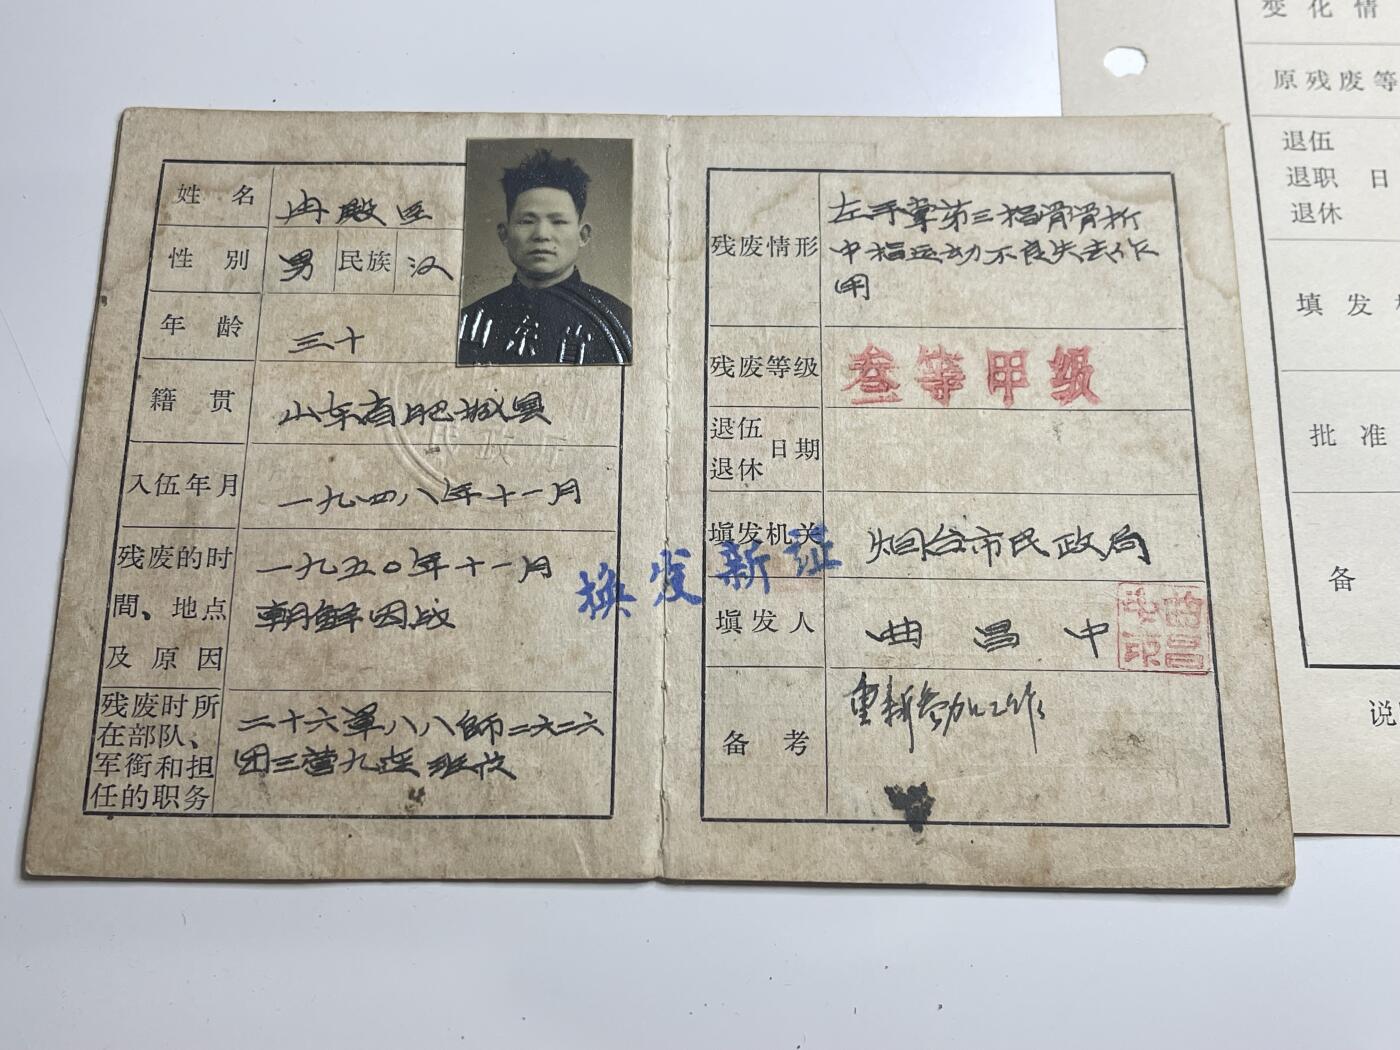 姓名 冉殿臣
性别 男 民族 汉
年龄 三十
籍贯 山东省肥城县
入伍年月 一九四八年十一月
残废的时
間、地点
及原因
一九五〇年十一月
朝鲜因战
残废时所
在部队、
军衔和担
任的职务
二十六军八八師二六二六
团三营九连
山东省
残废情形
左手掌第三指骨骨折
中指运动不良失去作
用
残废等级 叁等甲级
退伍
退休
日期
填发机关 烟台市民政局
换发新证
填发人 曲昌中
曲昌
中印
备考 重新参加工作
变化情
原残废等
退伍
退职 日
退休
填发
批准
备
说